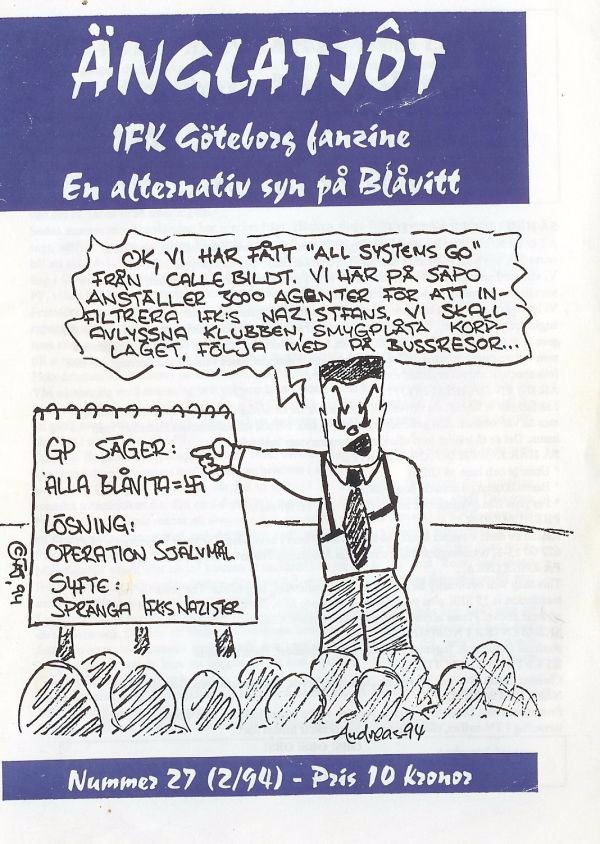 ÄNGLATJÔT
IFK Göteborg fanzine
En alternativ syn på Blåvitt
OK, VI HAR FÅTT "ALL SYSTEMS GO"
FRÅN CALLE BILDT. VI HÄR PÅ SÄPO
ANSTÄLLER 3000 AGENTER FÖR ATT IN-
FILTRERA IFK:S NAZISTFANS. VI SKALL
AVLYSSNA KLUBBEN, SMYGPLÅTA KORP-
LAGET, FÖLJA MED PÅ BUSSRESOR...
GP SÄGER:
ALLA BLÅVITA=卐
LÖSNING:
OPERATION SJÄLVMÅL
SYFTE:
SPRÄNGA IFK:S NAZISTER
Andreas 94
Nummer 27 (2/94) - Pris 10 kronor